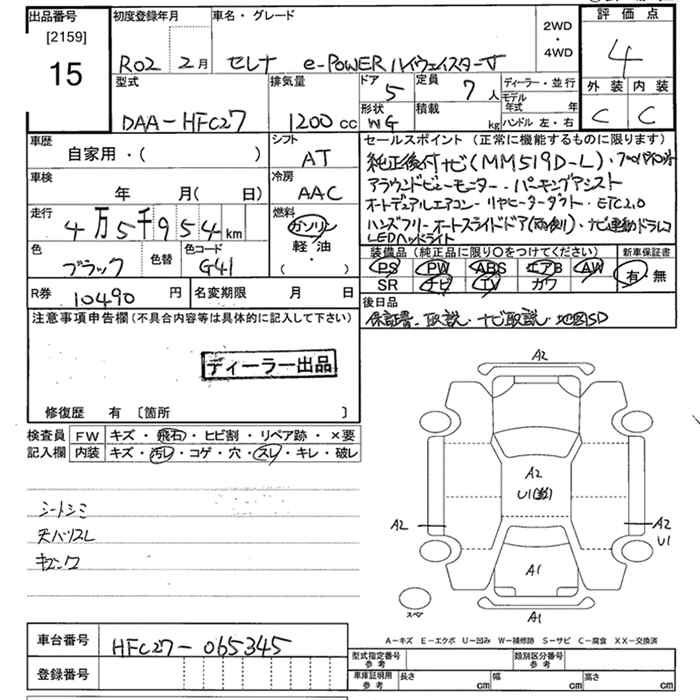 出品番号 初度登録年月 車名・グレード 2WD・4WD 評価点
[2159]
15 R02 2月 セレナ e-POWER ハイウェイスターV 4
型式 排気量 ドア 5 定員 7人 ディーラー・並行 外装 内装
DAA-HFC27 1200cc 形状 WG 積載 kg モデル年式 年 C C
ハンドル 左・右
車歴 シフト セールスポイント (正常に機能するものに限ります)
自家用・( ) AT 純正後付ナビ(MM519D-L)・
車検 冷房 アラウンドビューモニター・パーキングアシスト
年 月( 日) AAC オートデュアルエアコン・リヤヒーターダクト・ETC2.0
走行 燃料 ハンズフリーオートスライドドア(両側)・ナビ連動ドラレコ
4万5千954km ガソリン LEDヘッドライト
軽油
・( )
色 色替 色コード 装備品 (純正品に限り○をつけてください) 新車保証書
ブラック G41 PS PW ABS エアB AW 有・無
SR ナビ TV カワ
R券 10490円 名変期限 月 日 後日品
保証書・取説・ナビ取説・地図SD
注意事項申告欄(不具合内容等は具体的に記入して下さい)
ディーラー出品
修復歴 有 〔箇所 〕
検査員 FW キズ・飛石・ヒビ割・リペア跡・×要
記入欄 内装 キズ・汚レ・コゲ・穴・スレ・キレ・破レ
シートシミ
天バリスレ
A2
A2
U1
A2
A2
U1
A1
A1
スペア
A-キズ E-エクボ U-凹み W-補修跡 S-サビ C-腐食 XX-交換済
車台番号 HFC27-065345
登録番号
型式指定番号 参考 類別区分番号 参考
車庫証明用 参考 長さ cm 幅 cm 高さ cm